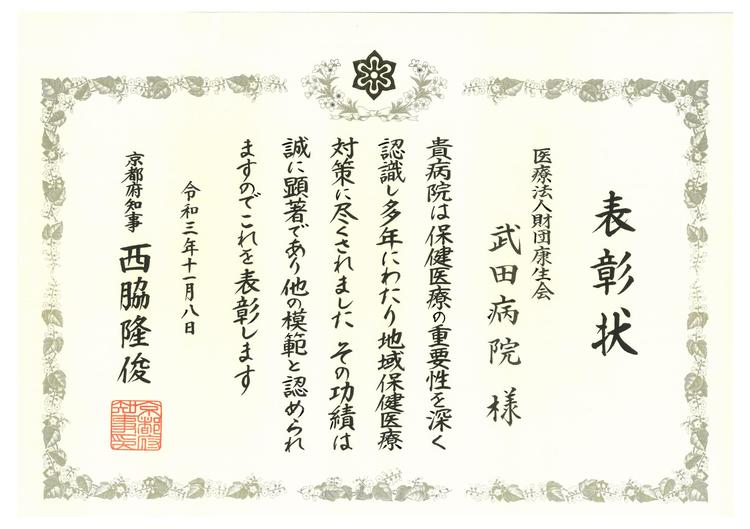 表彰状
医療法人財団康生会
武田病院様
貴病院は保健医療の重要性を深く
認識し多年にわたり地域保健医療
対策に尽くされました その功績は
誠に顕著であり他の模範と認められ
ますのでこれを表彰します
令和三年十一月八日
京都府知事 西脇隆俊
京都府
知事印